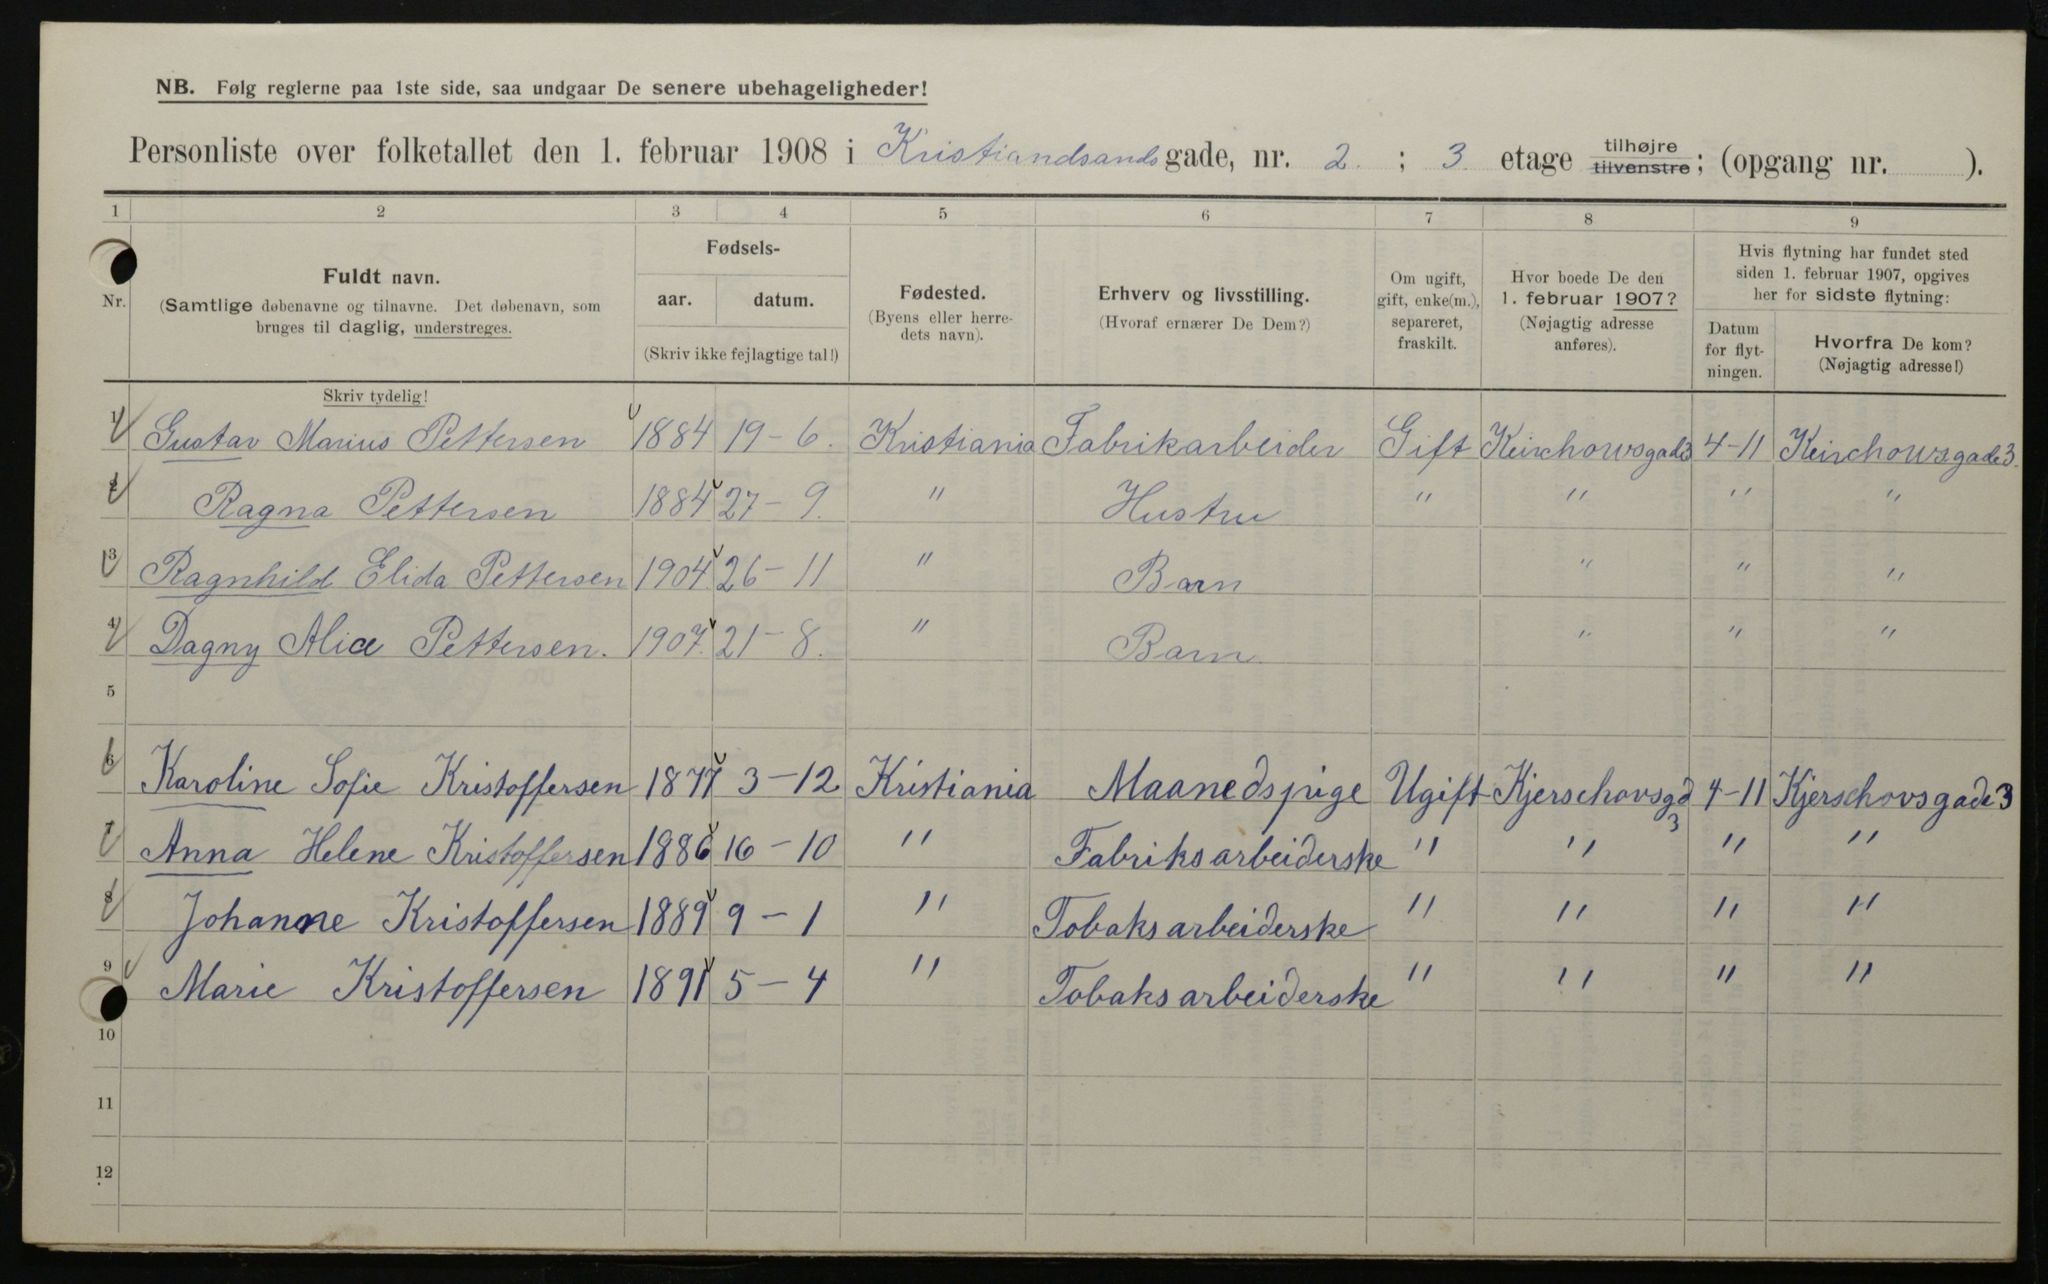 NB. Følg reglerne paa 1ste side, saa undgaar De senere ubehageligheder!
Personliste over folketallet den 1. februar 1908 i Kristiandsandsgade, nr. 2. ; 3. etage tilhøjre tilvenstre; (opgang nr. ).
1 2 3 4 5 6 7 8 9
Nr.
Fuldt navn.
(Samtlige døbenavne og tilnavne. Det døbenavn, som
bruges til daglig, understreges.
Skriv tydelig!
Fødsels-
aar. datum.
(Skriv ikke fejlagtige tal!)
Fødested.
(Byens eller herre-
dets navn).
Erhverv og livsstilling.
(Hvoraf ernærer De Dem?)
Om ugift,
gift, enke(m.),
separeret,
fraskilt.
Hvor boede De den
1. februar 1907?
(Nøjagtig adresse
anføres).
Hvis flytning har fundet sted
siden 1. februar 1907, opgives
her for sidste flytning:
Datum
for flyt-
ningen.
Hvorfra De kom?
(Nøjagtig adresse!)
1 Gustav Marius Pettersen 1884 19-6. Kristiania Fabrikarbeider Gift Keirschowsgade3 4-11 Keirschowsgade3.
2 Ragna Pettersen 1884 27-9. " Hustru " " " "
3 Ragnhild Elida Pettersen 1904 26-11 " Barn " " "
4 Dagny Alice Pettersen. 1907. 21-8. " Barn. " " "
5
6 Karoline Sofie Kristoffersen 1877 3-12 Kristiania Maanedspige Ugift Kjerschovsgd 3 4-11 Kjerschovsgade3
7 Anna Helene Kristoffersen 1886 16-10 " Fabriksarbeiderske " " " "
8 Johanne Kristoffersen 1889 9-1 " Tobaksarbeiderske " " " "
9 Marie Kristoffersen 1891 5-4 " Tobaksarbeiderske " " " "
10
11
12